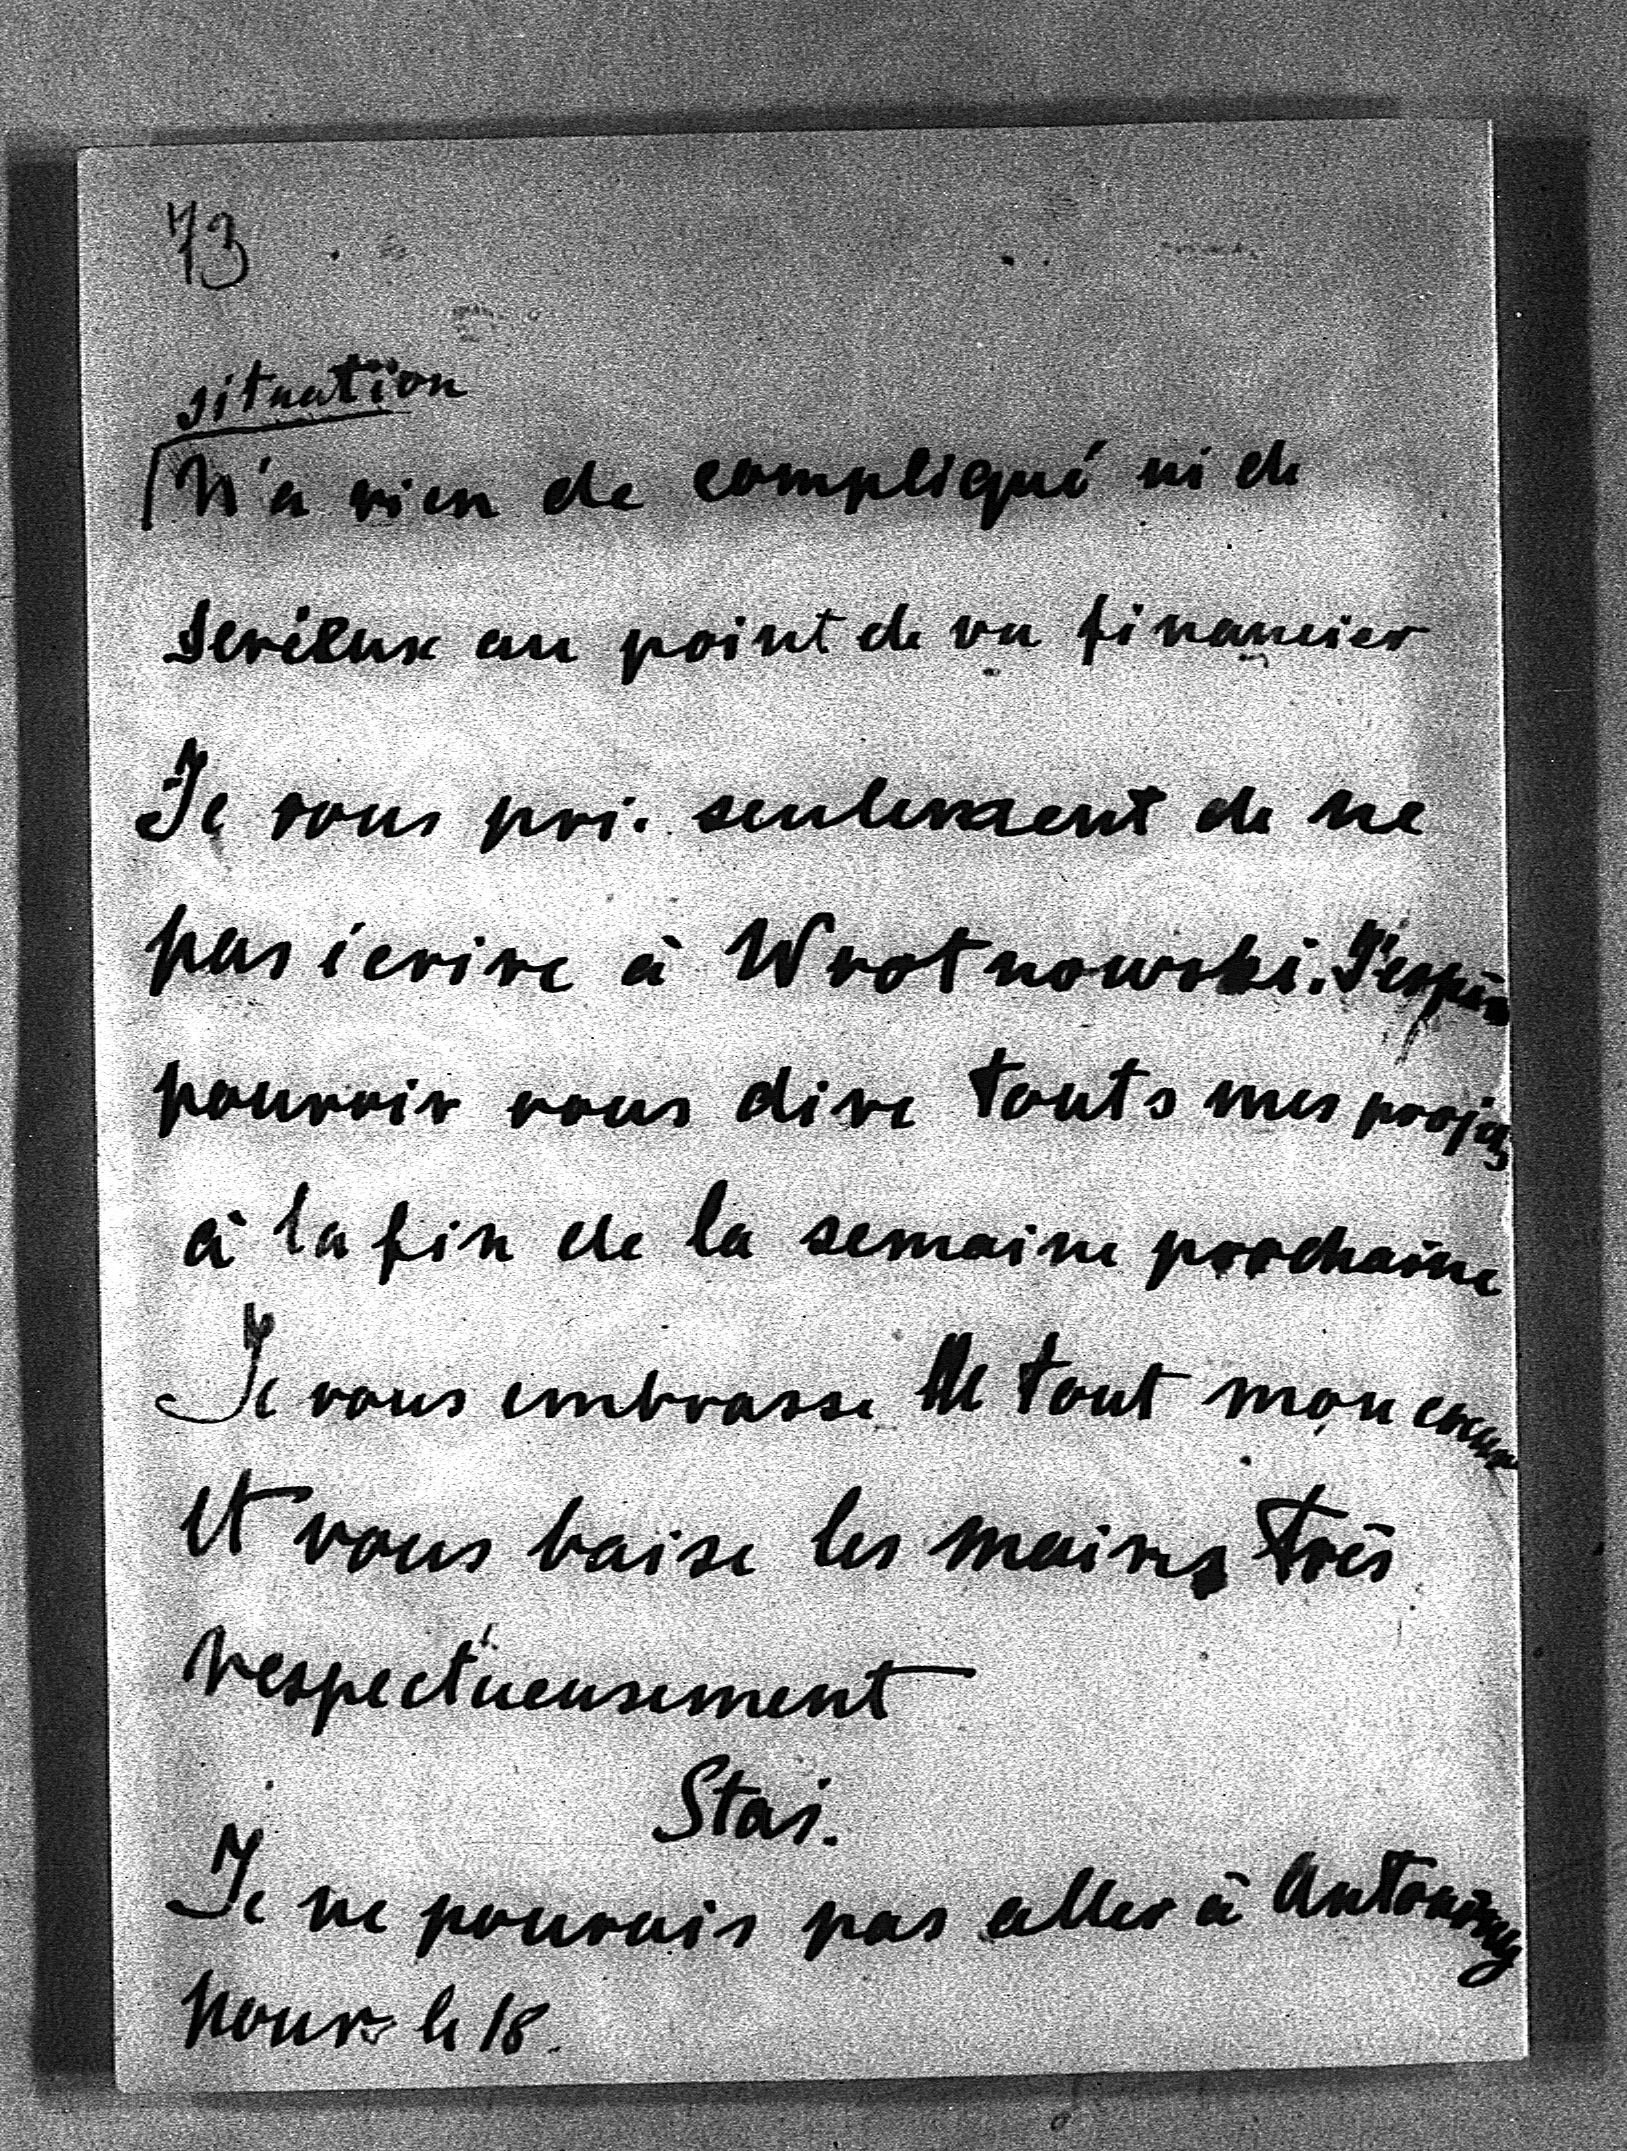 73
situation
N'a rien de compliqué ni de
serieux au point de vu financier
Je vous pri. seulement de ne
pas écrire à Wrotnowski. J'espère
pouvoir vous dire touts mes projets
à la fin de la semaine prochaine
Je vous embrasse de tout mon coeur
et vous baise les mains très
respectueusement
Stas.
Je ne pourais pas aller à Antoniny
pour le 18.